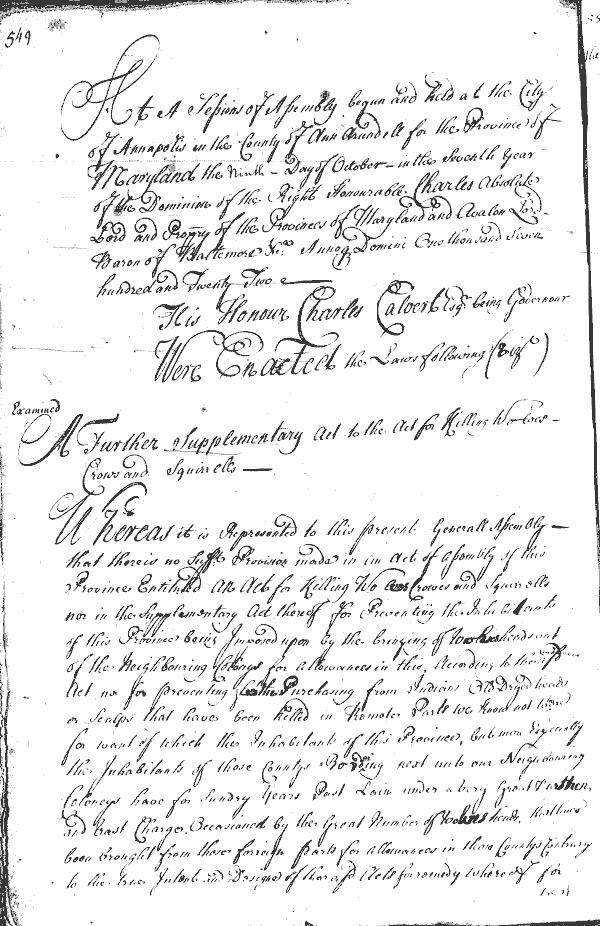 549
At A Sessions of Assembly begun and held at the City
of Annapolis in the County of Ann Arundell for the Province of
Maryland the Ninth - Day of October - in the Seventh Year
of the Dominion of the Right Honourable Charles Absolute
Lord and Propry of the Provinces of Maryland and Avalon Lord
Baron of Baltemore &c Annoq Domini One thousand Seven
hundred and Twenty Two
His Honour Charles Calvert Esqr being Governour
Were Enacted the Laws following (Viz)
Examined
A Further Supplementary Act to the Act for Killing Wolves
Crows and Squirrells
Whereas it is Represented to this present Generall Assembly
that there is no Provision made in an Act of Assembly of this
Province Entituled An Act for Killing Crowes and Squirrells
nor in the Supplementary Act thereof for Preventing the Inhabitants
of this Province being Imposed upon by the bringing of Wolves heads out
of the Neighbouring for allowances in this, According to the
Act nor for preventing the Purchasing from Indians Old Dryed heads
or Scalps that have been Killed in Remoter Parts we Know not
for want of which the Inhabitants of this Province, but more Especially
the Inhabitants of those Countys Bording next unto our Neighbouring
Coloneys have for Sundry Years Past Lain under a very Great Burthen
and vast Charge Occasioned by the Great Number of Wolves heads that have
been brought from those foreign Parts for allowances in those Countys
to the true Intent and Designe of the Acts for remedy whereof for